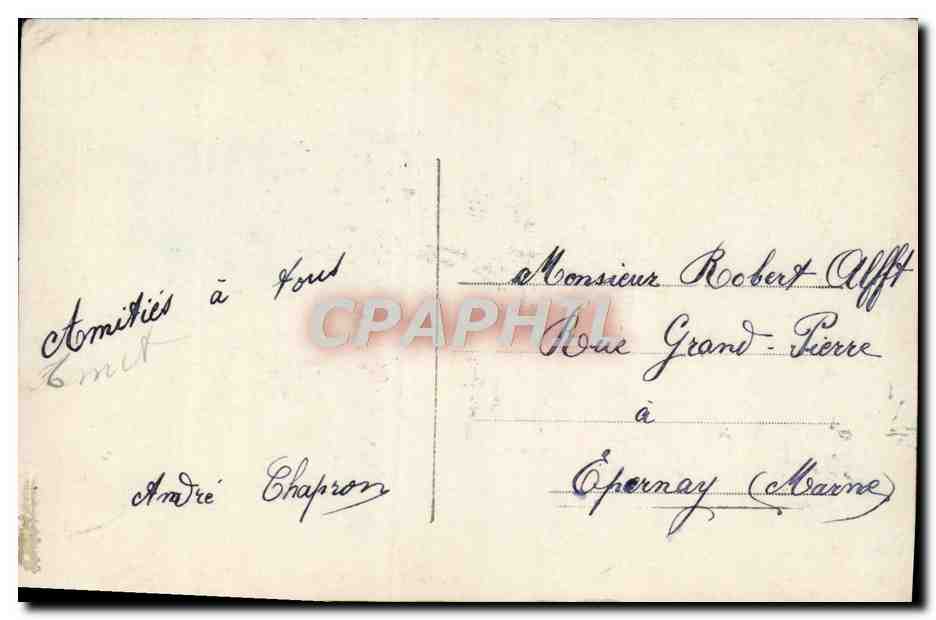 Amitiés à tous
André Chapron
Monsieur Robert Alfft
Rue Grand-Pierre
à
Épernay (Marne)
CPAPHIL